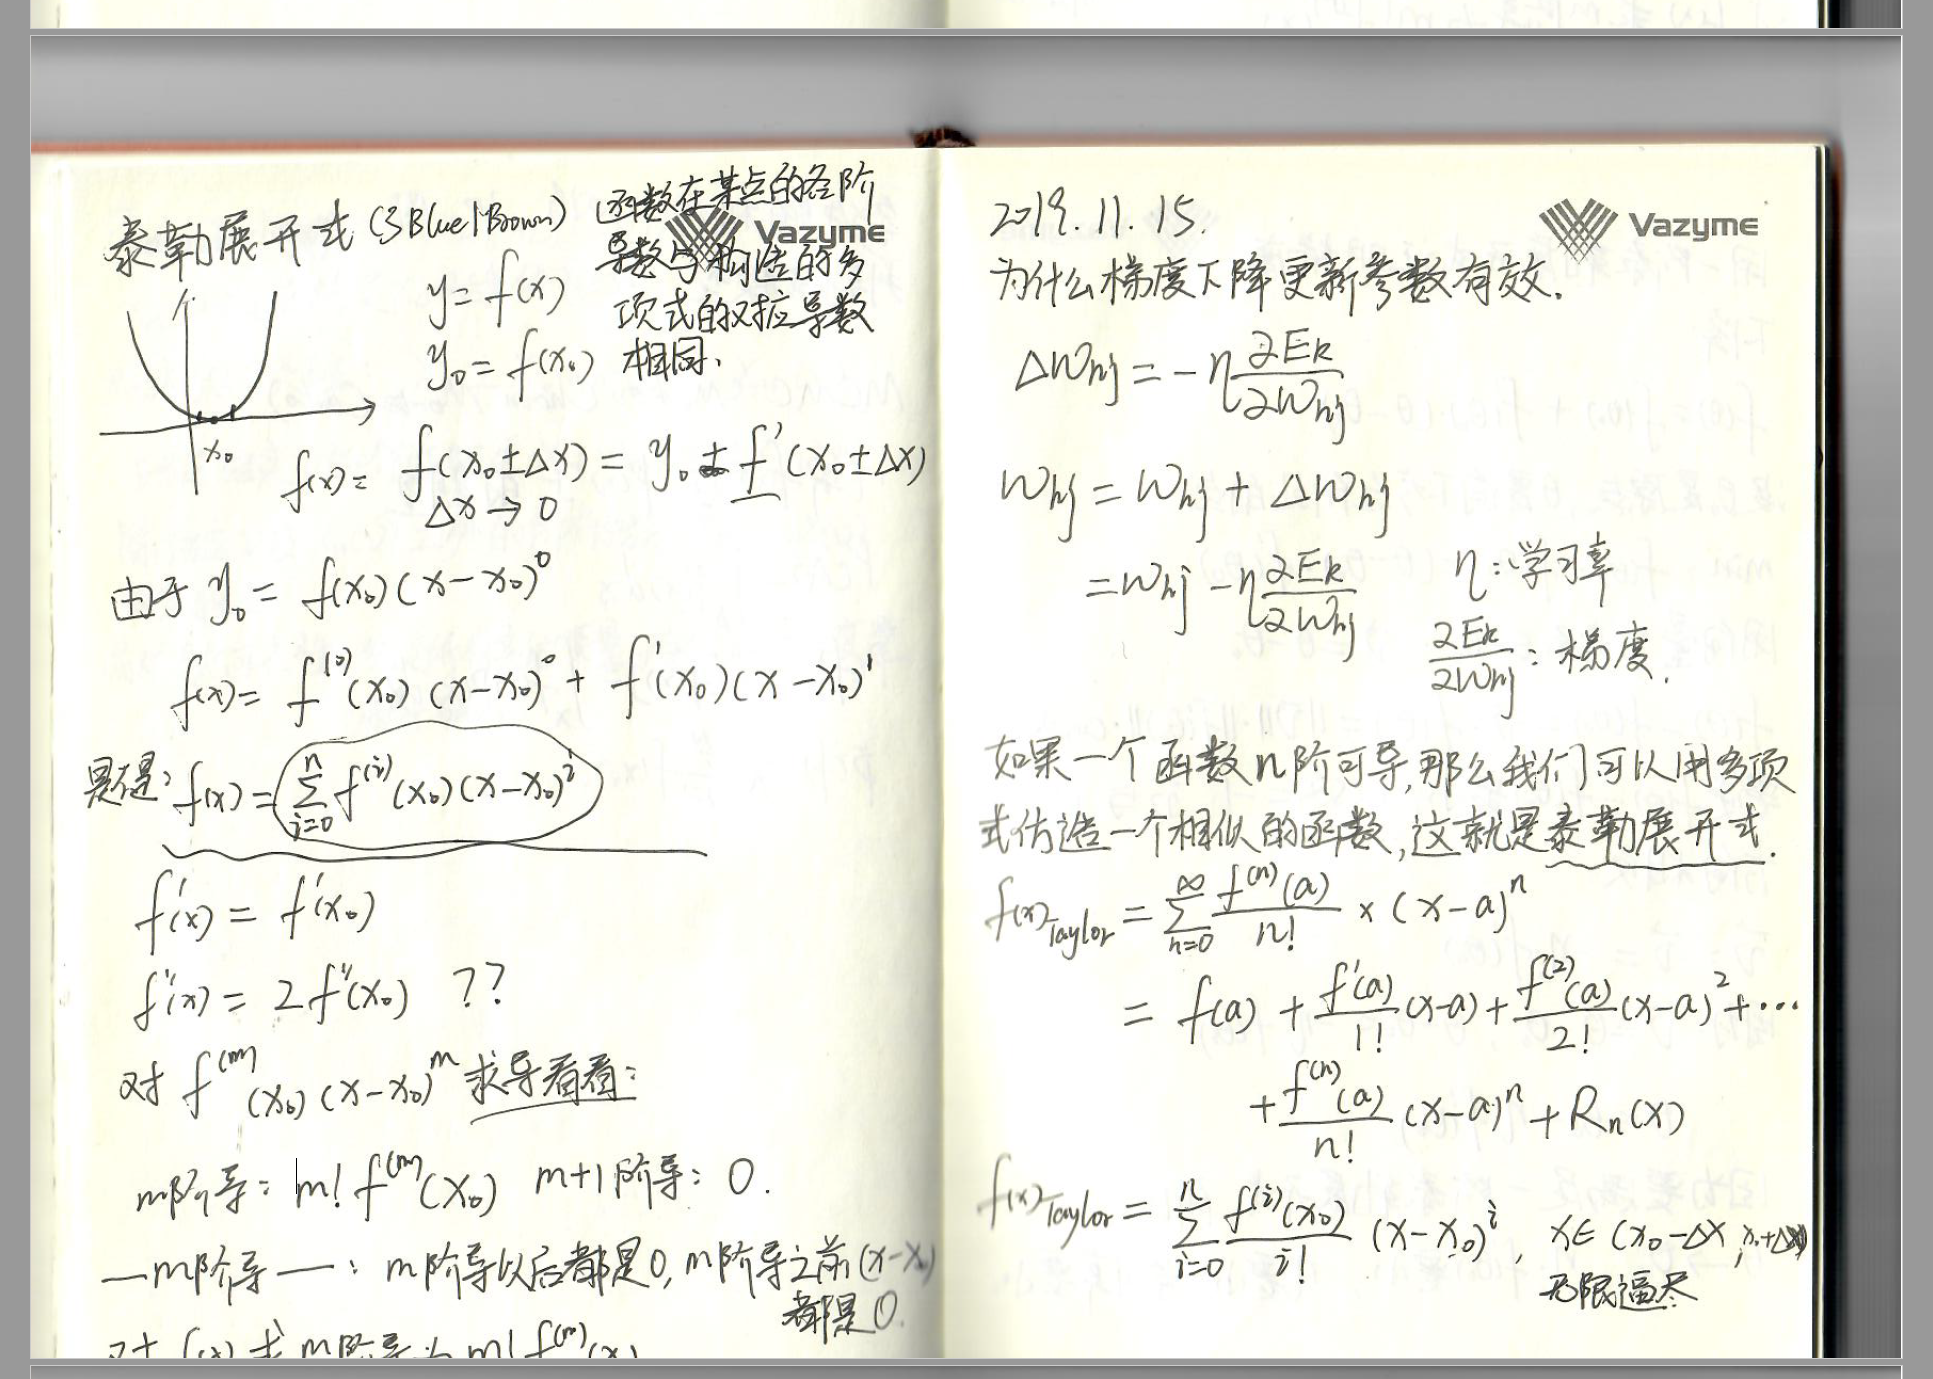 泰勒展开式(3Blue1Brown)
函数在某点的各阶
导数与构造的多
项式的对应导数
相同.
Vazyme
y=f(x)
y₀=f(x₀)
x₀
f(x)= f(x₀±Δx)= y₀ ± f'(x₀±Δx)
Δx→0
由于 y₀= f(x₀)(x-x₀)⁰
f(x)= f⁽⁰⁾(x₀)(x-x₀)⁰+ f'(x₀)(x-x₀)¹
是不是: f(x)= ∑ⁿᵢ₌₀ f⁽ⁱ⁾(x₀)(x-x₀)ⁱ
f'(x)= f'(x₀)
f''(x)= 2f''(x₀) ??
对 f⁽ᵐ⁾(x₀)(x-x₀)ᵐ 求导看看:
m阶导: m! f⁽ᵐ⁾(x₀) m+1阶导: 0.
—m阶导—: m阶导以后都是0, m阶导之前(x-x₀)
都是0.
对 f(x) 求 m阶导为 m! f⁽ᵐ⁾(x)
2019.11.15.
Vazyme
为什么梯度下降更新参数有效.
ΔWhj = -η ∂Ek/∂Whj
Whj = Whj + ΔWhj
=Whj -η ∂Ek/∂Whj
η:学习率
∂Ek/∂Whj : 梯度.
如果一个函数n阶可导,那么我们可以用多项
式仿造一个相似的函数,这就是泰勒展开式.
f(x)Taylor = ∑^∞ₙ₌₀ f⁽ⁿ⁾(a)/n! × (x-a)ⁿ
= f(a) + f'(a)/1! (x-a)+ f⁽²⁾(a)/2! (x-a)²+⋯
+ f⁽ⁿ⁾(a)/n! (x-a)ⁿ+Rₙ(x)
f(x)Taylor = ∑ⁿᵢ₌₀ f⁽ⁱ⁾(x₀)/i! (x-x₀)ⁱ, x∈(x₀-Δx, x₀+Δx)
无限逼近